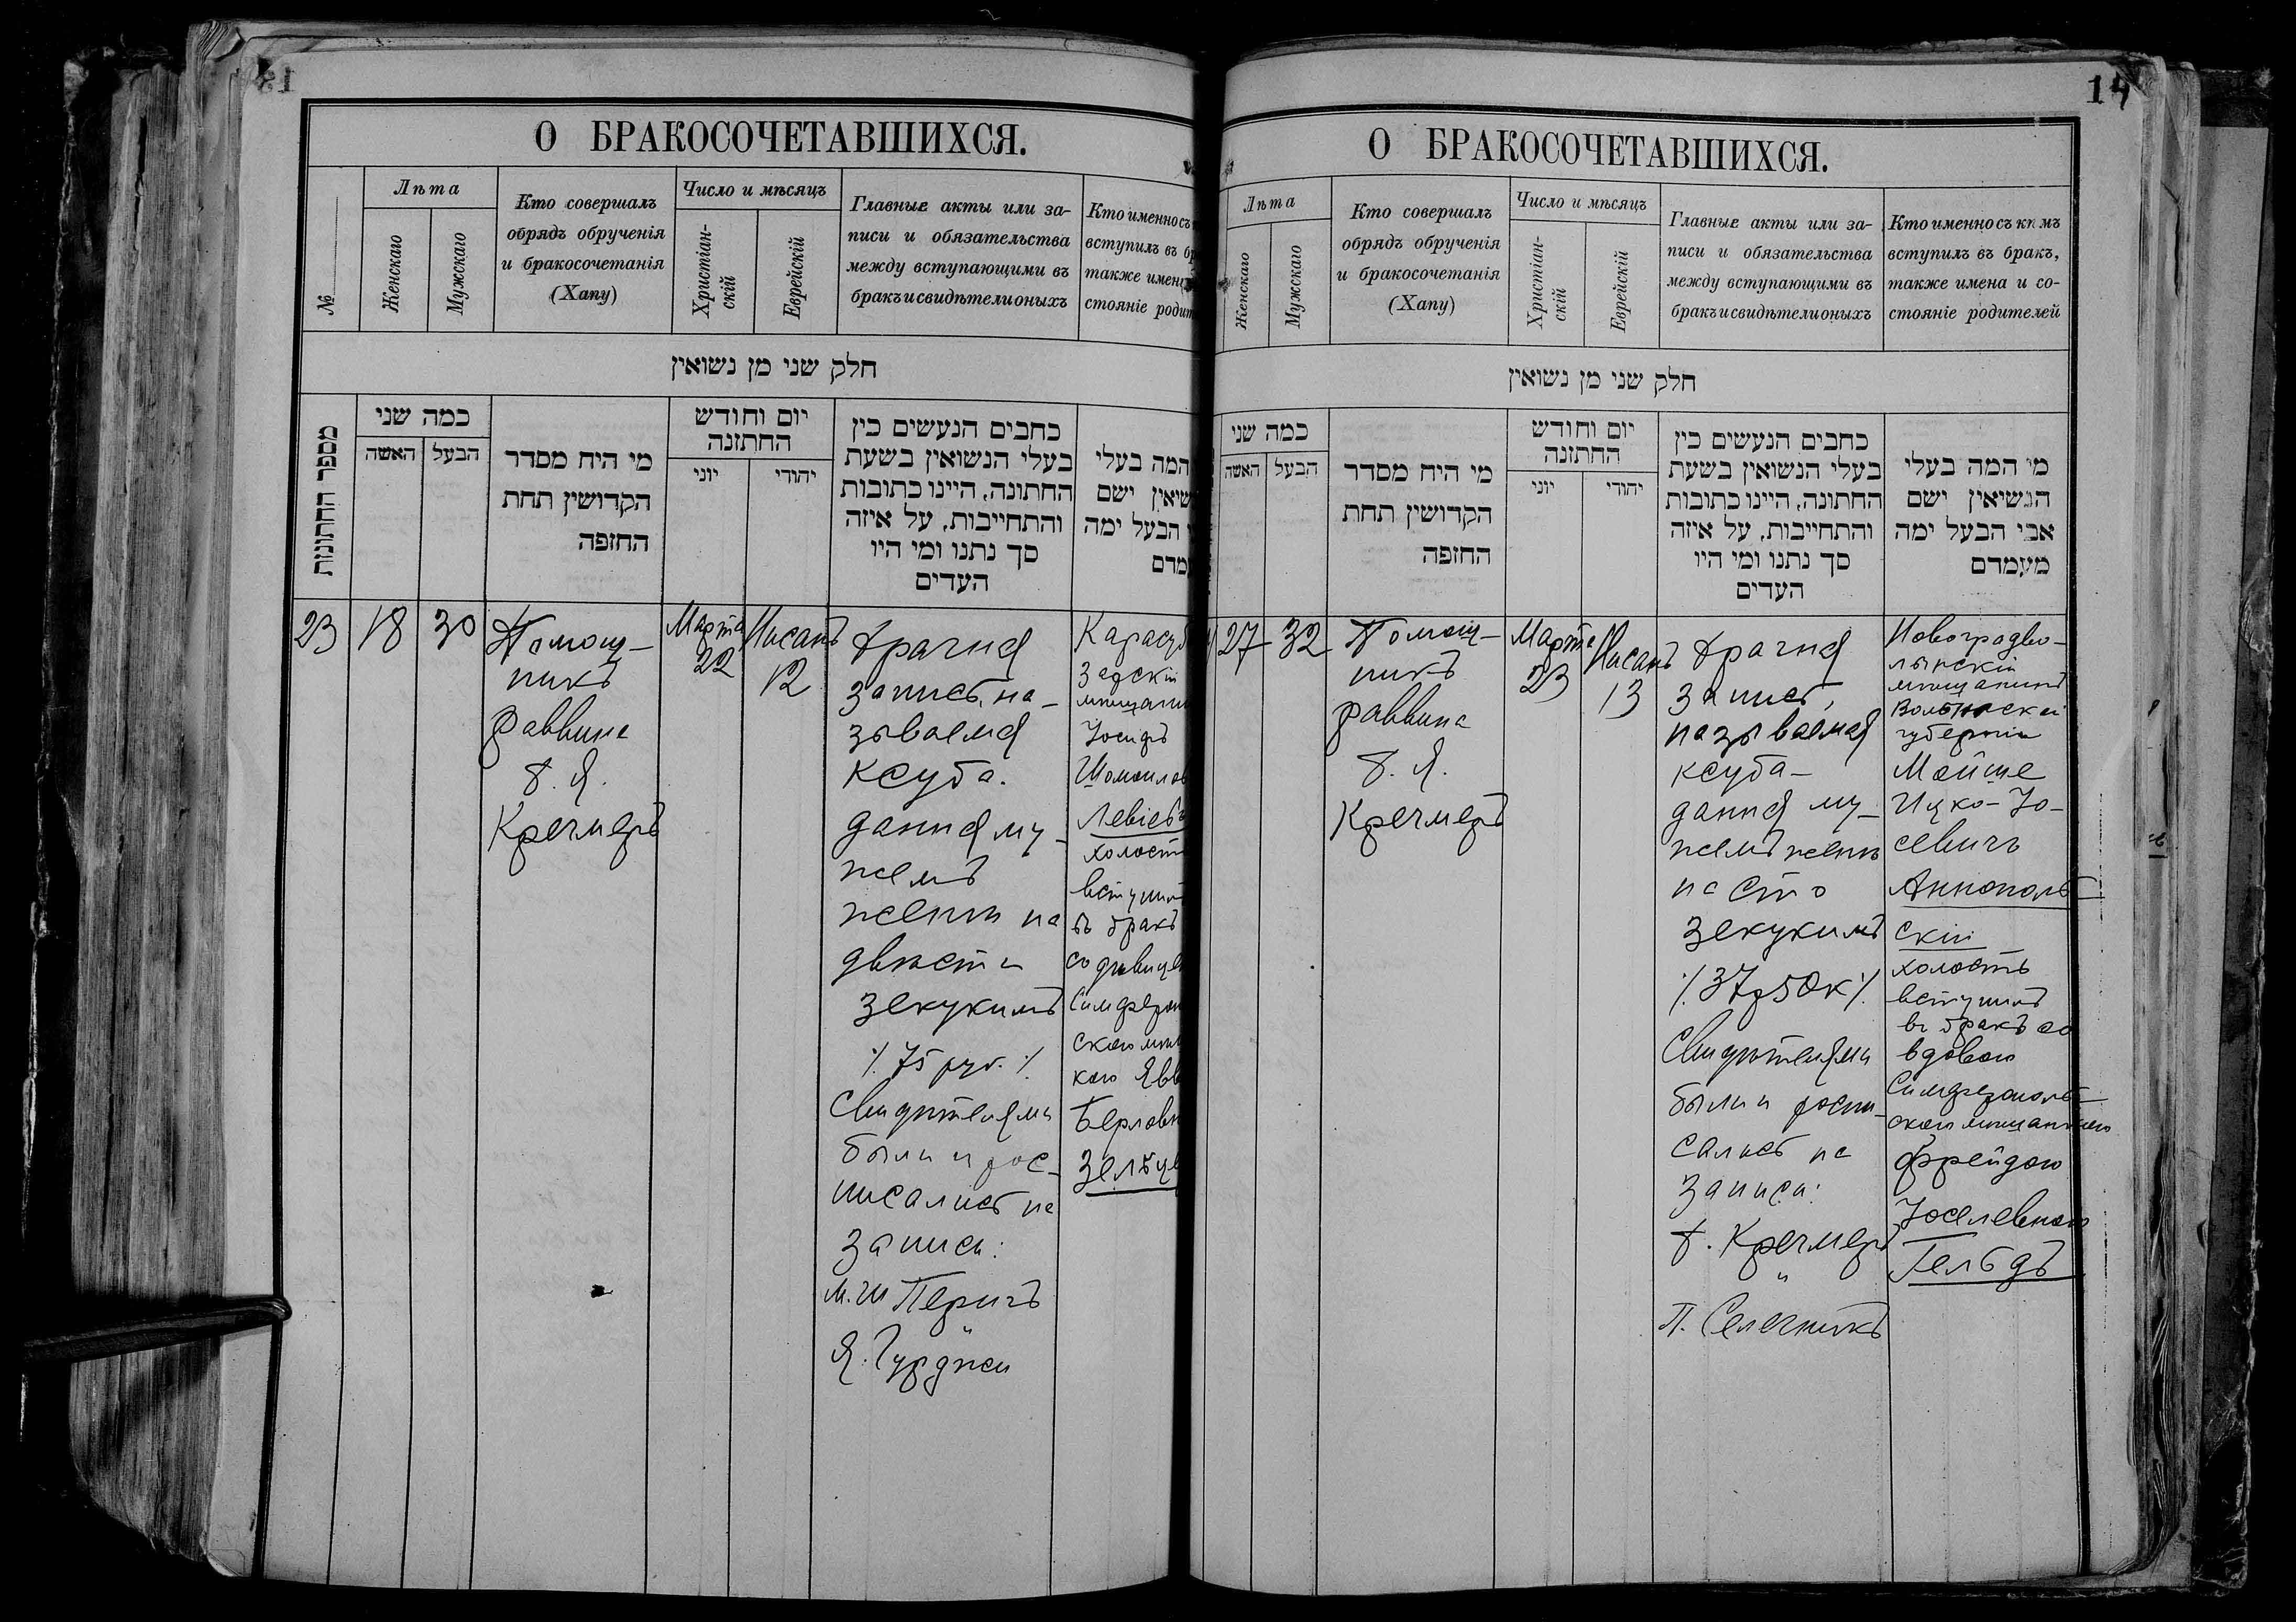 О БРАКОСОЧЕТАВШИХСЯ.
№
Лѣта
Женскаго
Мужскаго
Кто совершалъ
обрядъ обрученія
и бракосочетанія
(Хапу)
Число и мѣсяцъ
Христіан-
скій
Еврейскій
Главные акты или за-
писи и обязательства
между вступающими въ
бракъ и свидѣтели оныхъ
Кто именно съ
вступилъ въ
также
стояніе
חלק שני מן נשואין
מספר החתונות
כמה שני
האשה
הבעל
מי היח מסדר
הקדושין תחת
החופה
יום וחודש
החתונה
יוני
יהודי
כתבים הנעשים בין
בעלי הנשואין בשעת
החתונה, היינו כתובות
והתחייבות, על איזה
סך נתנו ומי היו
העדים
המה בעלי
ישם
הבעל ימה
23
18
30
Помощ-
никъ
раввина
Я.
Кречмеръ
Марта
22
Нисанъ
12
Брачная
запись, на-
зываемая
ксуба.
данная му-
жемъ
женѣ на
двѣсти
зекукимъ
⁒ 75 руб. ⁒
Свидѣтелями
были и рос-
писались на
записи:
М. Ш Перичъ
и
Я. Гурджи
Карасуб
зарскій
мѣщани
Іосифъ
Шомоилов
Левіевъ
холост
вступил
въ бракъ
со дѣвице
Симфероп
скою мѣщ
кою
Берловн
14
О БРАКОСОЧЕТАВШИХСЯ.
Лѣта
Женскаго
Мужскаго
Кто совершалъ
обрядъ обрученія
и бракосочетанія
(Хапу)
Число и мѣсяцъ
Христіан-
скій
Еврейскій
Главные акты или за-
писи и обязательства
между вступающими въ
бракъ и свидѣтели оныхъ
Кто именно съ кѣмъ
вступилъ въ бракъ,
также имена и со-
стояніе родителей
חלק שני מן נשואין
כמה שני
האשה
הבעל
מי היח מסדר
הקדושין תחת
החופה
יום וחודש
החתונה
יוני
יהודי
כתבים הנעשים בין
בעלי הנשואין בשעת
החתונה, היינו כתובות
והתחייבות, על איזה
סך נתנו ומי היו
העדים
מי המה בעלי
הנשיאין ישם
אבי הבעל ימה
מעמדם
27
32
Помощ-
никъ
раввина
Я.
Кречмеръ
Марта
23
Нисанъ
13
Брачная
запись,
называемая
ксуба-
данная му-
жемъ женѣ
на сто
зекукимъ
⁒ 37р50к ⁒
Свидѣтелями
были и роспи-
сались на
записи:
Кречмеръ
и
П. Селечникъ
Новоградво-
лынскій
мѣщанинъ
Волынской
губерніи
Мойше
Ицко-Іо-
севичъ
Аннополь-
скій
холостъ
вступилъ
въ бракъ со
вдовою
Симферополь-
скою мѣщанкою
Фрейдою
Іоселевною
Гельдъ